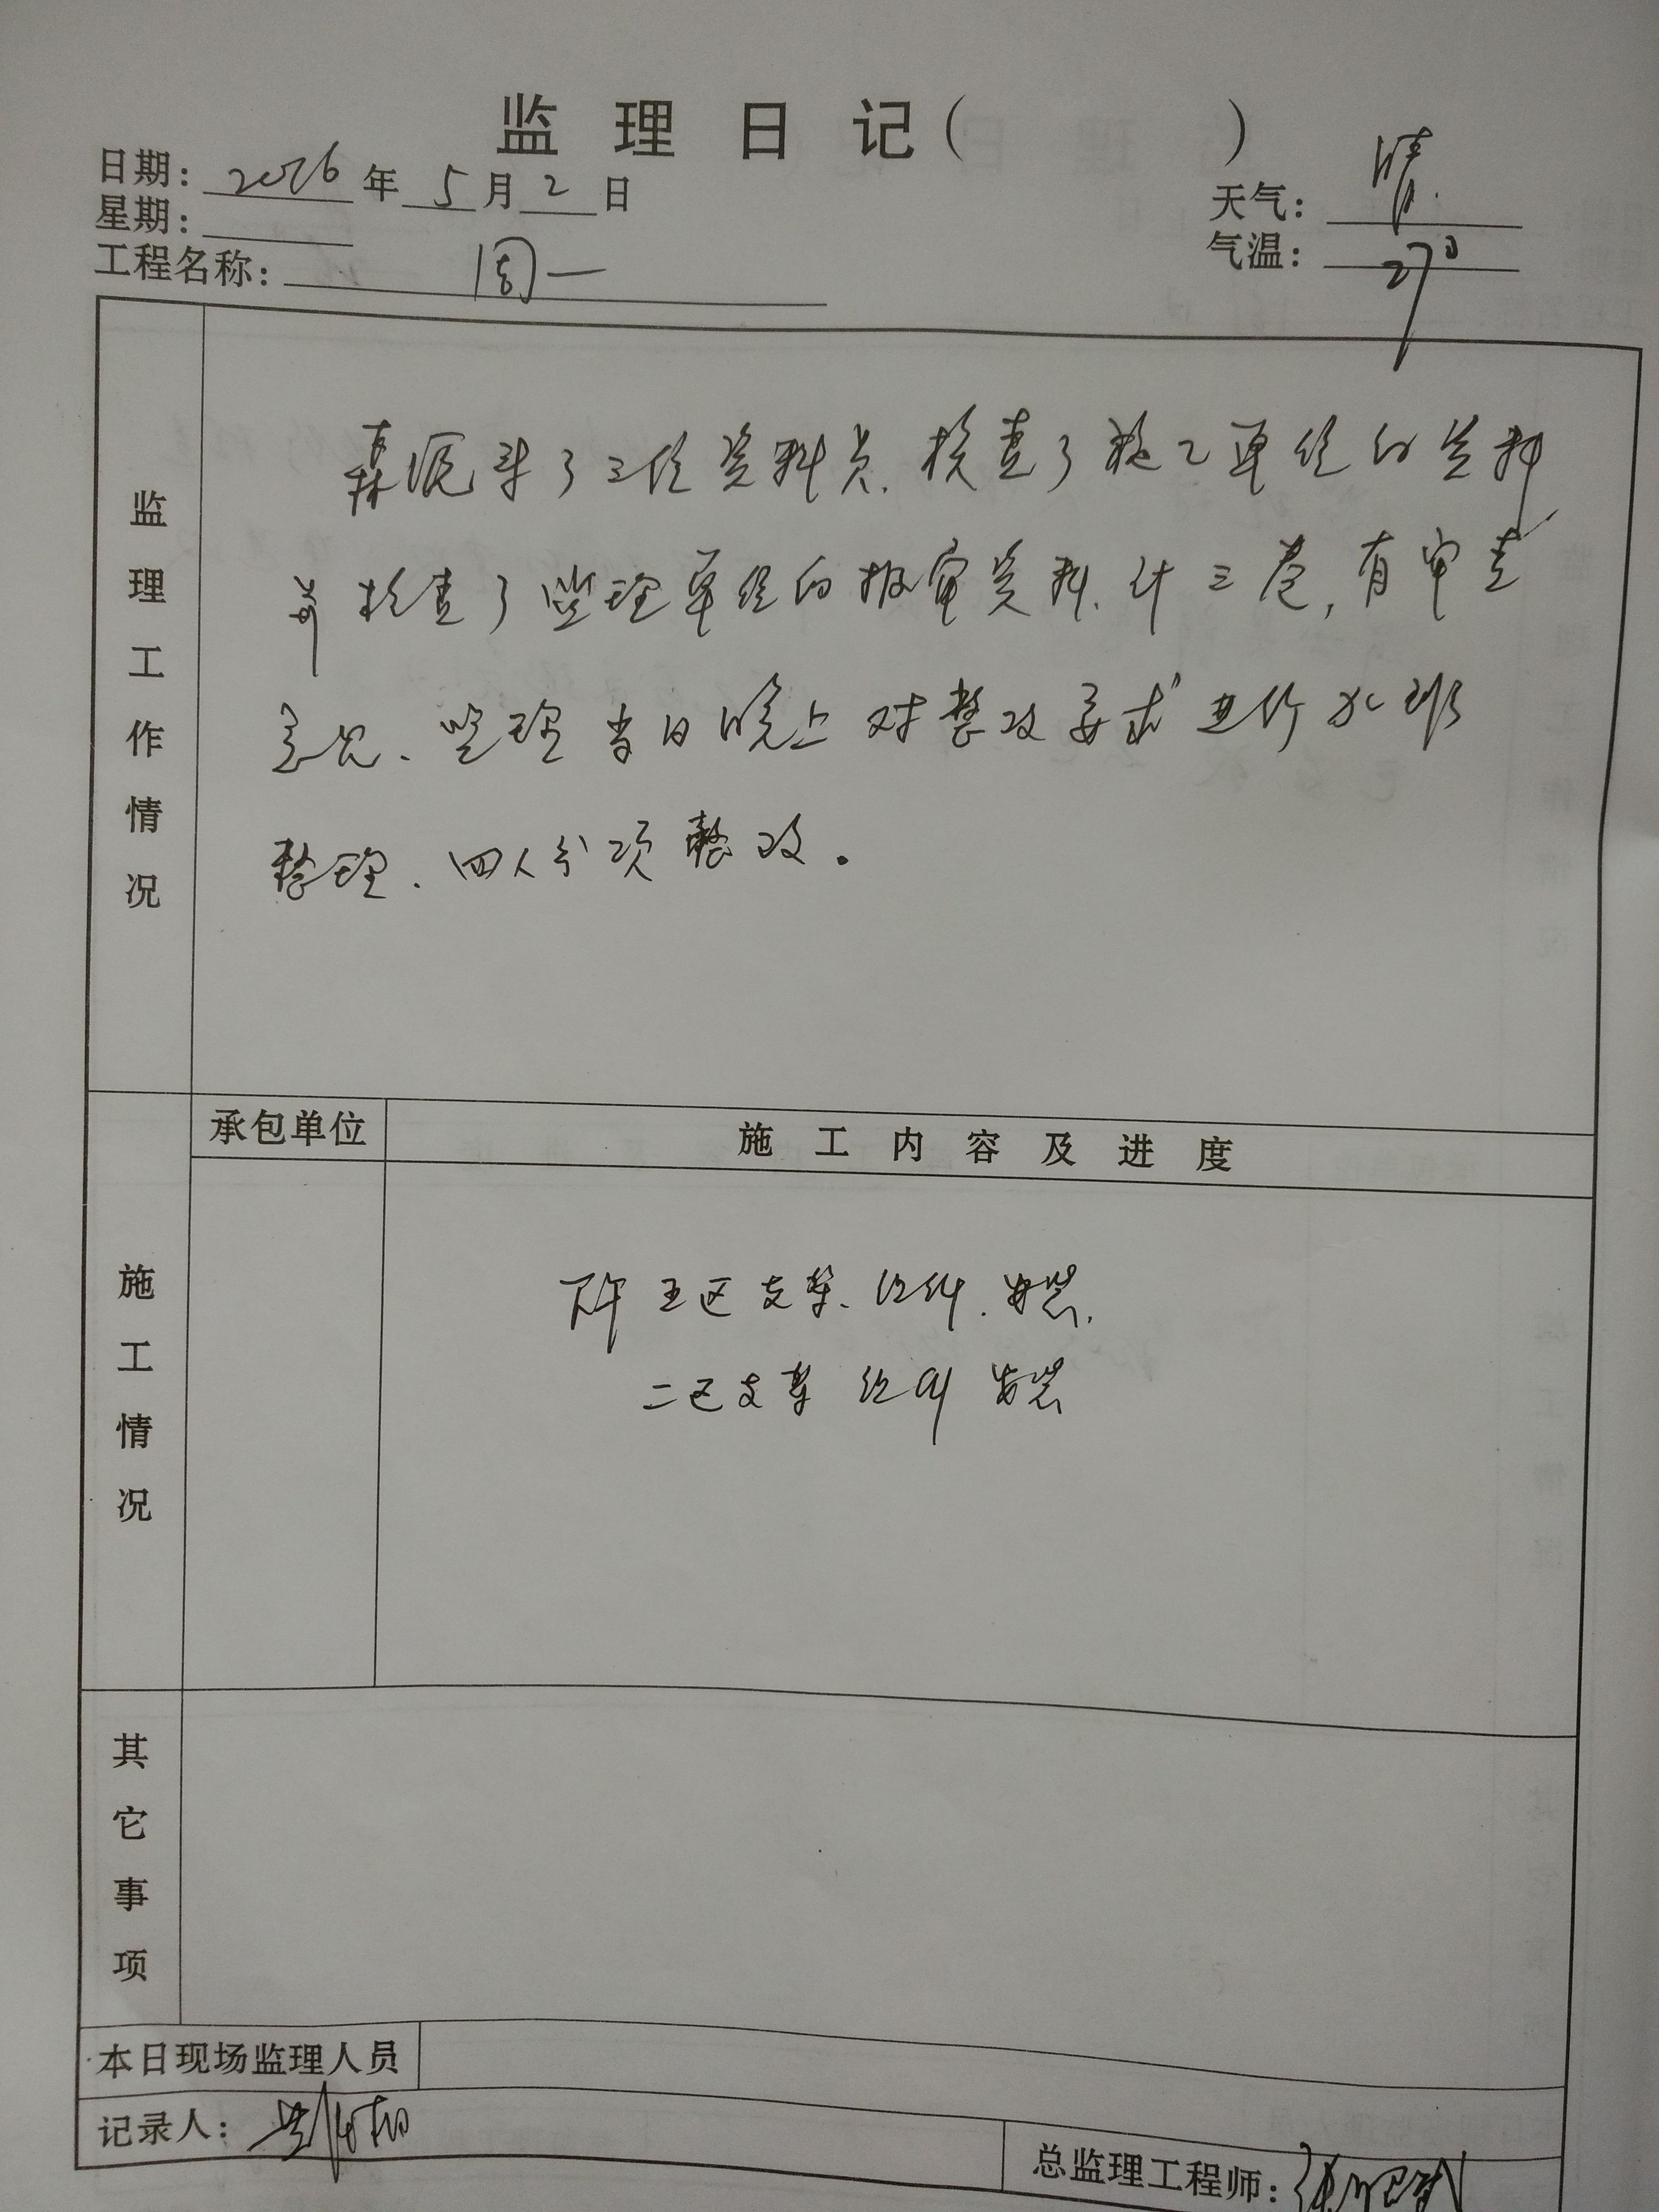 监理日记（ ）
日期：2026年5月2日
天气：晴
星期：
气温：27°
工程名称：周一
监理工作情况
来了三位资料员、检查了施工单位的资料
并检查了监理单位的报审资料、计三卷，有审查
意见、监理当日晚上对整改要求进行加班
整理、四人分项整改。
施工情况
承包单位
施工内容及进度
下午 五区支架、组件、安装、
二区支架 组件 安装
其它事项
本日现场监理人员
记录人：
总监理工程师：